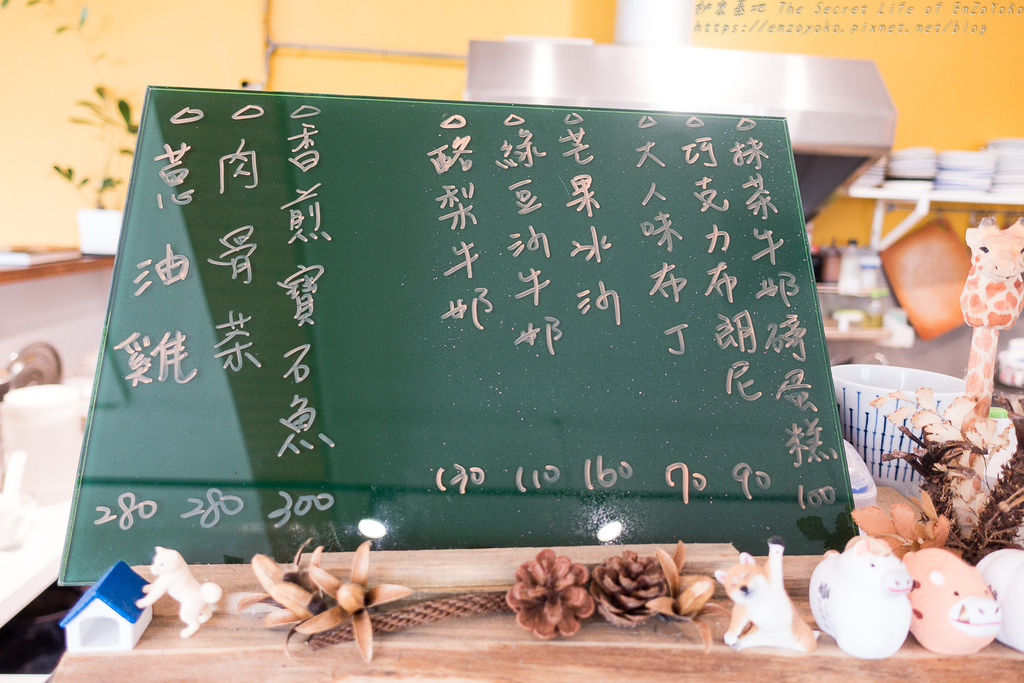 秘密基地 The Secret Life of EnZoYoKo
https://enzoyoko.pixnet.net/blog
抹茶牛奶磅蛋糕 100
巧克力布朗尼 90
大人味布丁 70
芒果冰沙 160
綠豆沙牛奶 110
酪梨牛奶 130
香煎寶石魚 300
肉骨茶 280
蔥油雞 280